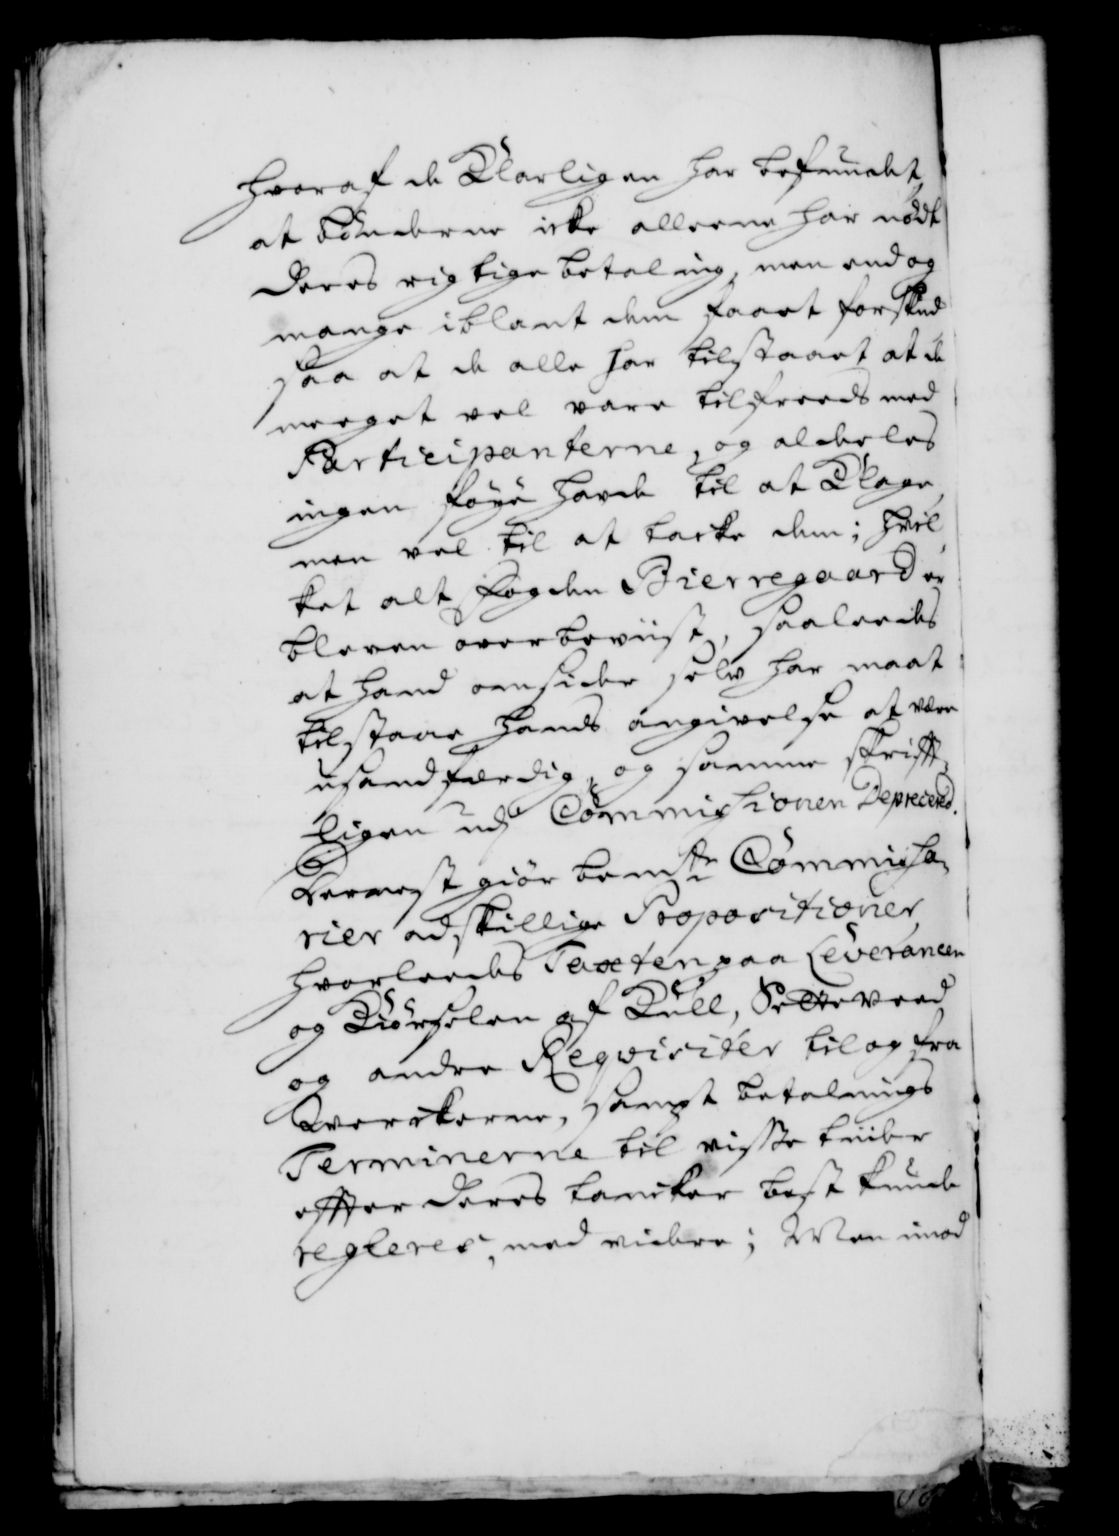 hvoraf de Klarligen har befundet,
at bönderne icke alleene har nödt
deres rigtige betaling, men endog
mange iblant dem faaet forskud
saa at de alle har tilstaaet at de
meeget vel vare tilfreeds med
Participanterne, og aldeles
ingen föye havde til at Klage,
men vel til at tacke dem; hvil,
ket alt fogden Bierregaard er
bleven overbeviist, saaleedes
at hand omsider selv har maat
tilstaae hands angivelse at være
usandfærdig, og samme skrifft,
ligen ud Commissionen Deprecered.
Dernest giör bemte Commissa,
rier adskillige Propositioner,
hvorleedes Taxten paa Leverancen
og Kiörselen af Kull, Setteveed
og andre Reqvisiter til og fra
Verckerne, sampt betalnings
Terminerne til visse tiider
effter deres tancker best kunde
regleres, med videre; Men imod